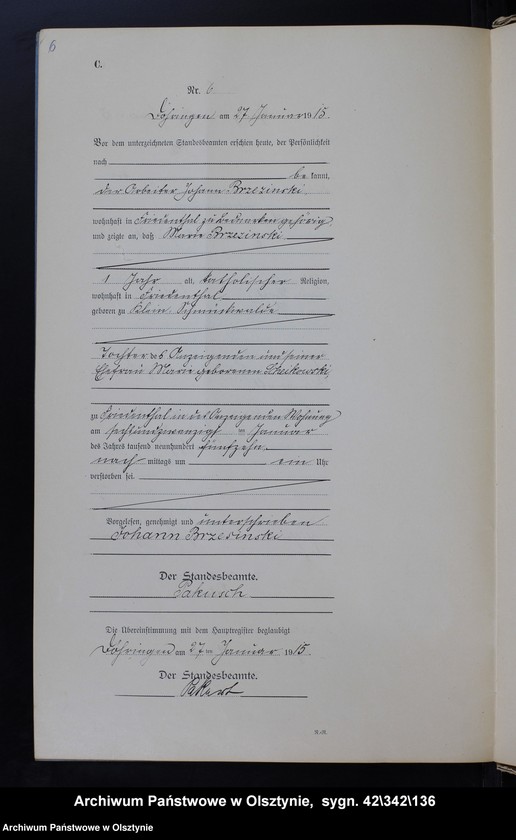 6
C.
Nr. 6
Döhringen am 27 Januar 1915.
Vor dem unterzeichneten Standesbeamten erschien heute, der Persönlichkeit
nach
be kannt,
der Arbeiter Johann Brzezinski
wohnhaft in Friedenthal zu gehörig
und zeigte an, daß Marie Brzezinski
1 Jahr alt, katholischer Religion,
wohnhaft in Friedenthal
geboren zu Klein Schmückwalde
Tochter des Anzeigenden und seiner
Ehefrau Marie geborenen
zu Friedenthal in des Anzeigenden Wohnung
am sechsundzwanzigsten Januar
des Jahres tausend neunhundert fünfzehn
nach mittags um ein Uhr
verstorben sei.
Vorgelesen, genehmigt und unterschrieben
Johann Brzesinski
Der Standesbeamte.
Pakusch
Die Übereinstimmung mit dem Hauptregister beglaubigt
Döhringen am 27ten Januar 1915.
Der Standesbeamte.
Archiwum Państwowe w Olsztynie, sygn. 42\342\136
Archiwum Państwowe w Olsztynie